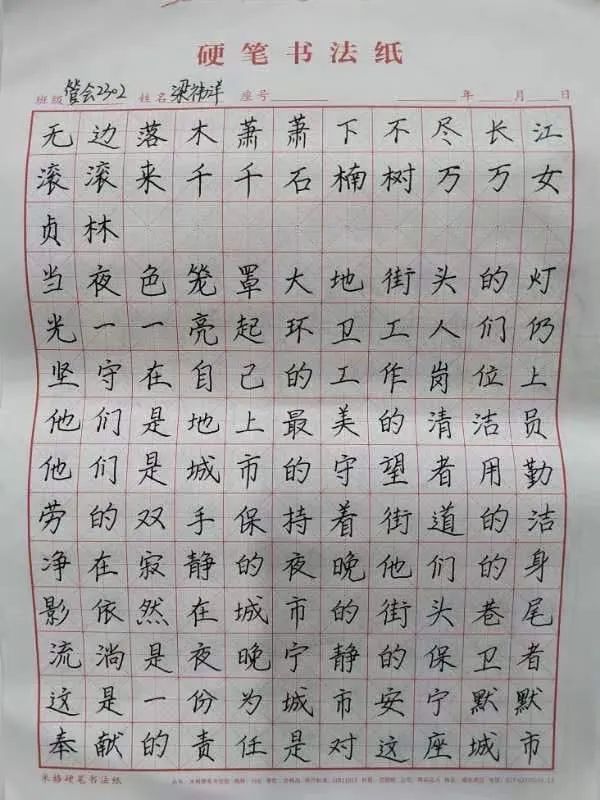 硬笔书法纸
班级 管会2302 姓名 梁祎洋 座号 年 月 日
无边落木萧萧下不尽长江
滚滚来千千石楠树万万女
贞林
当夜色笼罩大地街头的灯
光一一亮起环卫工人们仍
坚守在自己的工作岗位上
他们是地上最美的清洁员
他们是城市的守望者用勤
劳的双手保持着街道的洁
净在寂静的夜晚他们的身
影依然在城市的街头巷尾
流淌是夜晚宁静的保卫者
这是一份为城市安宁默默
奉献的责任是对这座城市
米格硬笔书法纸